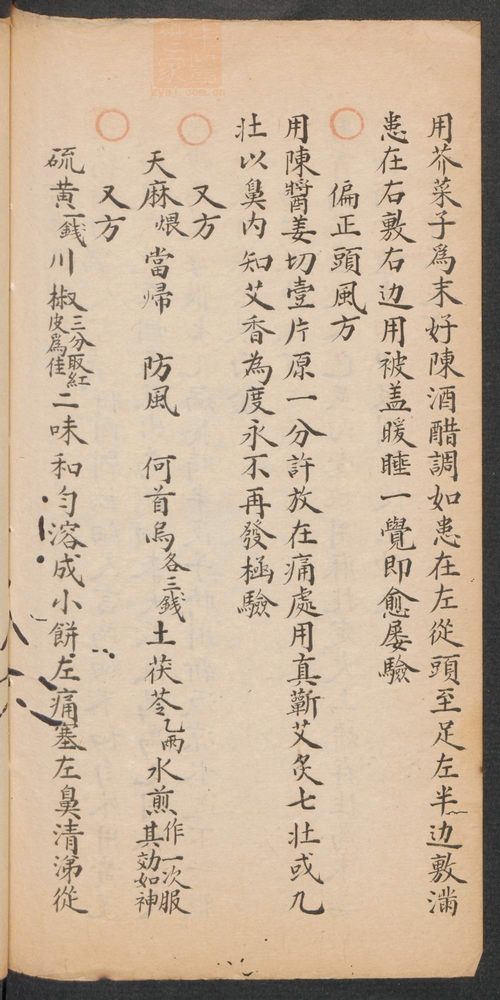 用芥菜子爲末好陳酒醋調如患在左從頭至足左半边敷滿
患在右敷右边用被盖暖睡一覺即愈屡驗
偏正頭風方
用陳醬姜切壹片原一分許放在痛處用真蘄艾炙七壮或九
壮以鼻内知艾香為度永不再發極驗
又方
天麻煨 當帰 防風 何首烏各三錢土茯苓乙两水煎作一次服其効如神
又方
硫黄一錢川椒三分取紅皮爲佳二味和匀溶成小餅左痛塞左鼻清涕從